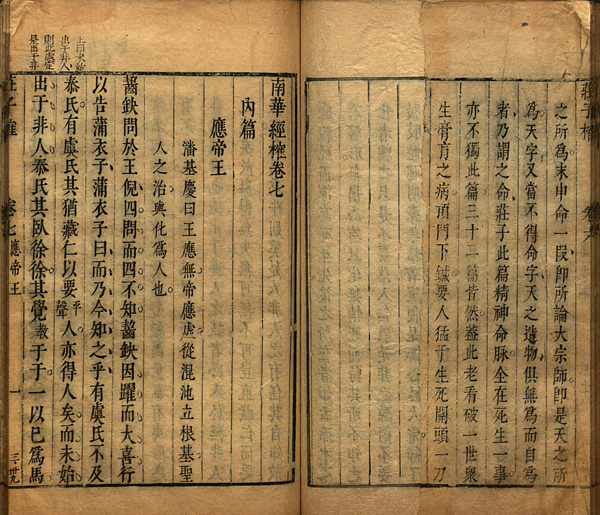 莊子榷
卷六
之所為末申命一段即所論大宗師即是天之所
為天字又當不得命字天之造物俱無為而自為
者乃謂之命莊子此篇精神命脉全在死生一事
亦不獨此篇三十二篇皆然蓋此老看破一世衆
生膏肓之病頂門下鍼要人猛于生死開頭一刀
南華經榷卷七
內篇
應帝王
潘基慶曰王應無帝應虛從混沌立根基聖
人之治與化為人也
齧缺問於王倪四問而四不知齧缺因躍而大喜行
以告蒲衣子蒲衣子曰而乃今知之乎有虞氏不及
泰氏有虞氏其猶藏仁以要平聲人亦得人矣而未始
出于非人泰氏其臥徐徐其覺教于于一以已為馬
莊子榷
卷七
應帝王
一
出于非人